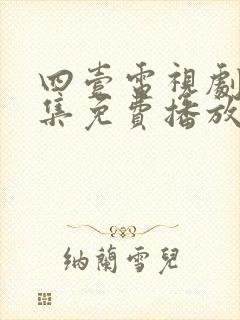 四壹雷視劇
集免費播放
納蘭雪兒